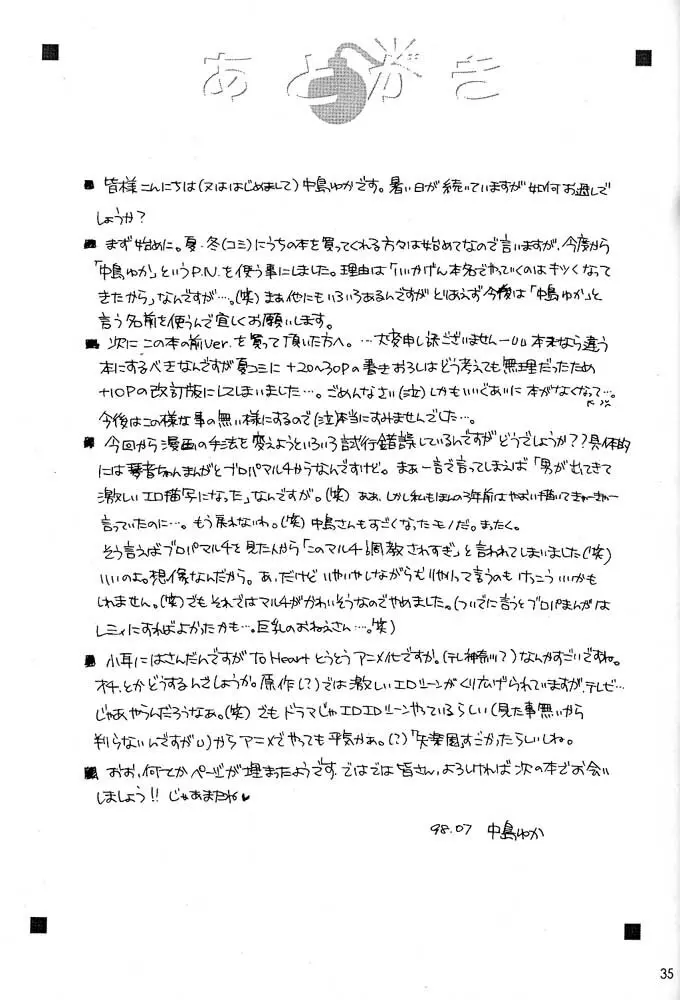 あとがき
■ 皆様こんにちは(又ははじめまして)中島ゆかです。暑い日が続いていますが如何お過しで
しょうか?
■ まず始めに。夏・冬(コミ)にうちの本を買ってくれる方々は始めてなので言いますが、今度から
「中島ゆか」というP.N.を使う事にしました。理由は「いいかげん本名でやっていくのはキツくなって
きたから」なんですが…。(笑) まあ他にもいろいろあるんですがとりあえず今後は「中島ゆか」と
言う名前を使うんで宜しくお願いします。
■ 次にこの本の前Ver.を買って頂いた方へ。…大変申し訳ございませんー 本来なら違う
本にするべきなんですが夏コミに+20~30Pの書きおろしはどう考えても無理だったため
+10Pの改訂版にしてしまいました…。ごめんなさい(泣)しかもいいぐあいに本がなくなって…。
今後はこの様な事の無い様にするので(泣)本当にすみませんでした…。
■ 今回から漫画の手法を変えようといろいろ試行錯誤しているんですがどうでしょうか??具体的
には琴音ちゃんまんがとブロパマルチからなんですけど。まあ一言で言ってしまえば「男が出てきて
激しいエロ描写になった」なんですが。(笑) ああ、しかし私もほんの3年前はやおい描いてきゃーきゃー
言っていたのに…。もう戻れないわ。(笑)中島さんもすごくなったモノだ。まったく。
そう言えばブロパマルチを見た人から「このマルチ調教されすぎ」と言われてしまいました(笑)
いいのよ。想像なんだから。あ、だけどいやいやしながらむりやりって言うのもけっこういいかも
しれません。(笑)でもそれではマルチがかわいそうなのでやめました。(ついでに言うとブロパまんがは
レミィにすればよかったかも…。巨乳のおねえさん…。笑)
■ 小耳にはさんだんですがTo Heartとうとうアニメ化ですか。(テレビ神奈川?)なんかすごいですね。
オチとかどうするんでしょうか。原作(?)では激しいエロシーンがくり広げられていますが、テレビ…
じゃあやらんだろうなあ。(笑)でもドラマじゃエロエロシーンやっているらしい(見た事無いから
判らないんですが)からアニメでやっても平気かぁ。(?)「失楽園」すごかったらしいしね。
■ おお、何とかページが埋まったようです。ではでは皆さん、よろしければ次の本でお会い
しましょう!!じゃあまたね♥
98.07 中島ゆか
35